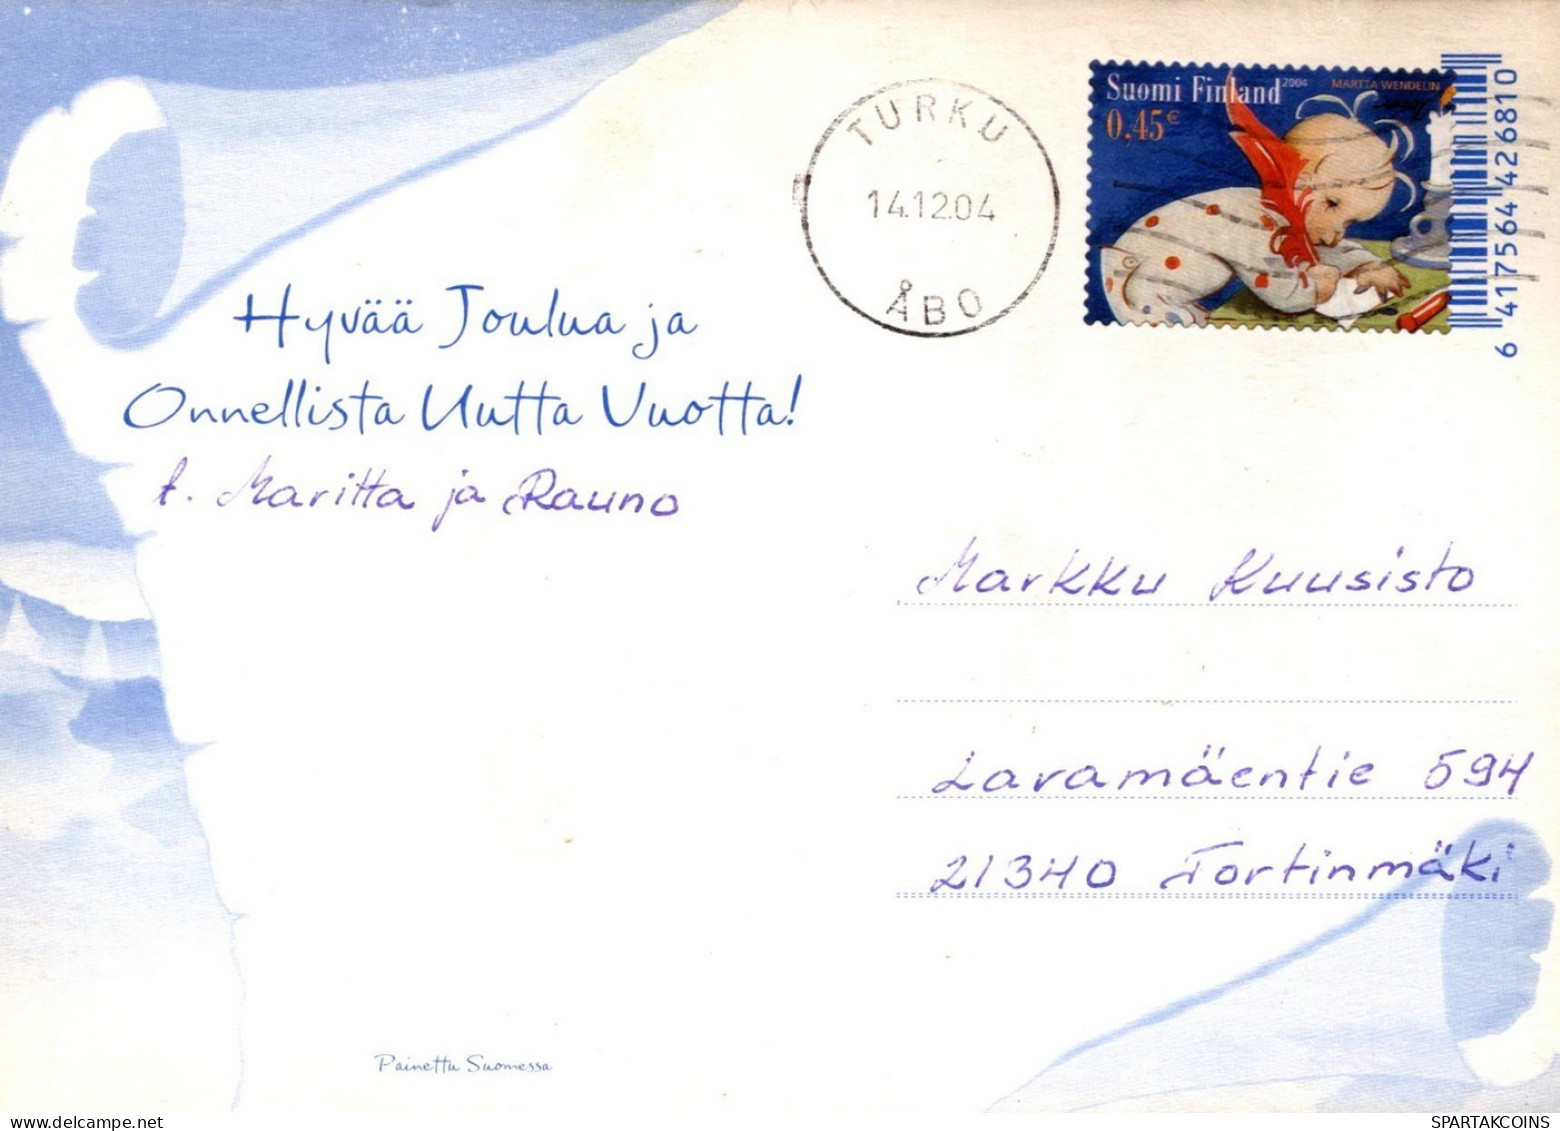 Suomi Finland 2004 MARTTA WENDELIN
0,45€
6 417564 426810
TURKU
14.12.04
ÅBO
Hyvää Joulua ja
Onnellista Uutta Vuotta!
t. Maritta ja Rauno
Markku Kuusisto
Lavamäentie 594
21340 Tortinmäki
Painettu Suomessa
SPARTAKCOINS